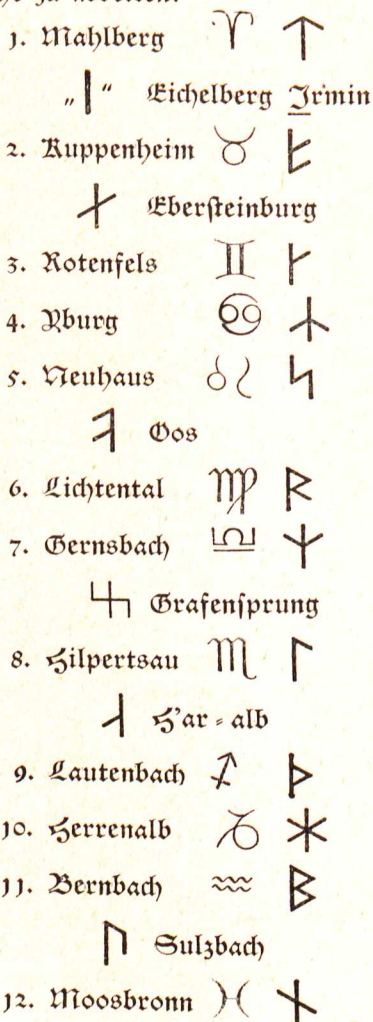 1. Mahlberg ♈ ᛏ
„ᛁ“ Eichelberg Irmin
2. Kuppenheim ♉
Ebersteinburg
3. Rotenfels ♊ ᚴ
4. Yburg ♋ ᛣ
5. Neuhaus ♌ ᛋ
Oos
6. Lichtental ♍ ᚱ
7. Gernsbach ♎ ᛉ
Grafensprung
8. Hilpertsau ♏ ᛚ
H'ar=alb
9. Lautenbach ♐ ᚦ
10. Herrenalb ♑ ᚼ
11. Bernbach ♒ ᛒ
ᚢ Sulzbach
12. Moosbronn ♓ ᚾ